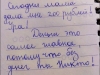 Сегодня мама
дала мне 200 рублей!
Ура!
это
самое главное,
потому что без
денег ты никто!